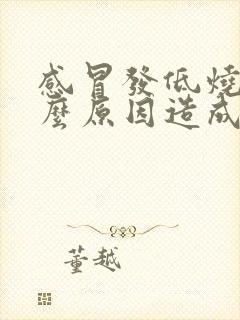 感冒發低燒
麼原因造成
董越